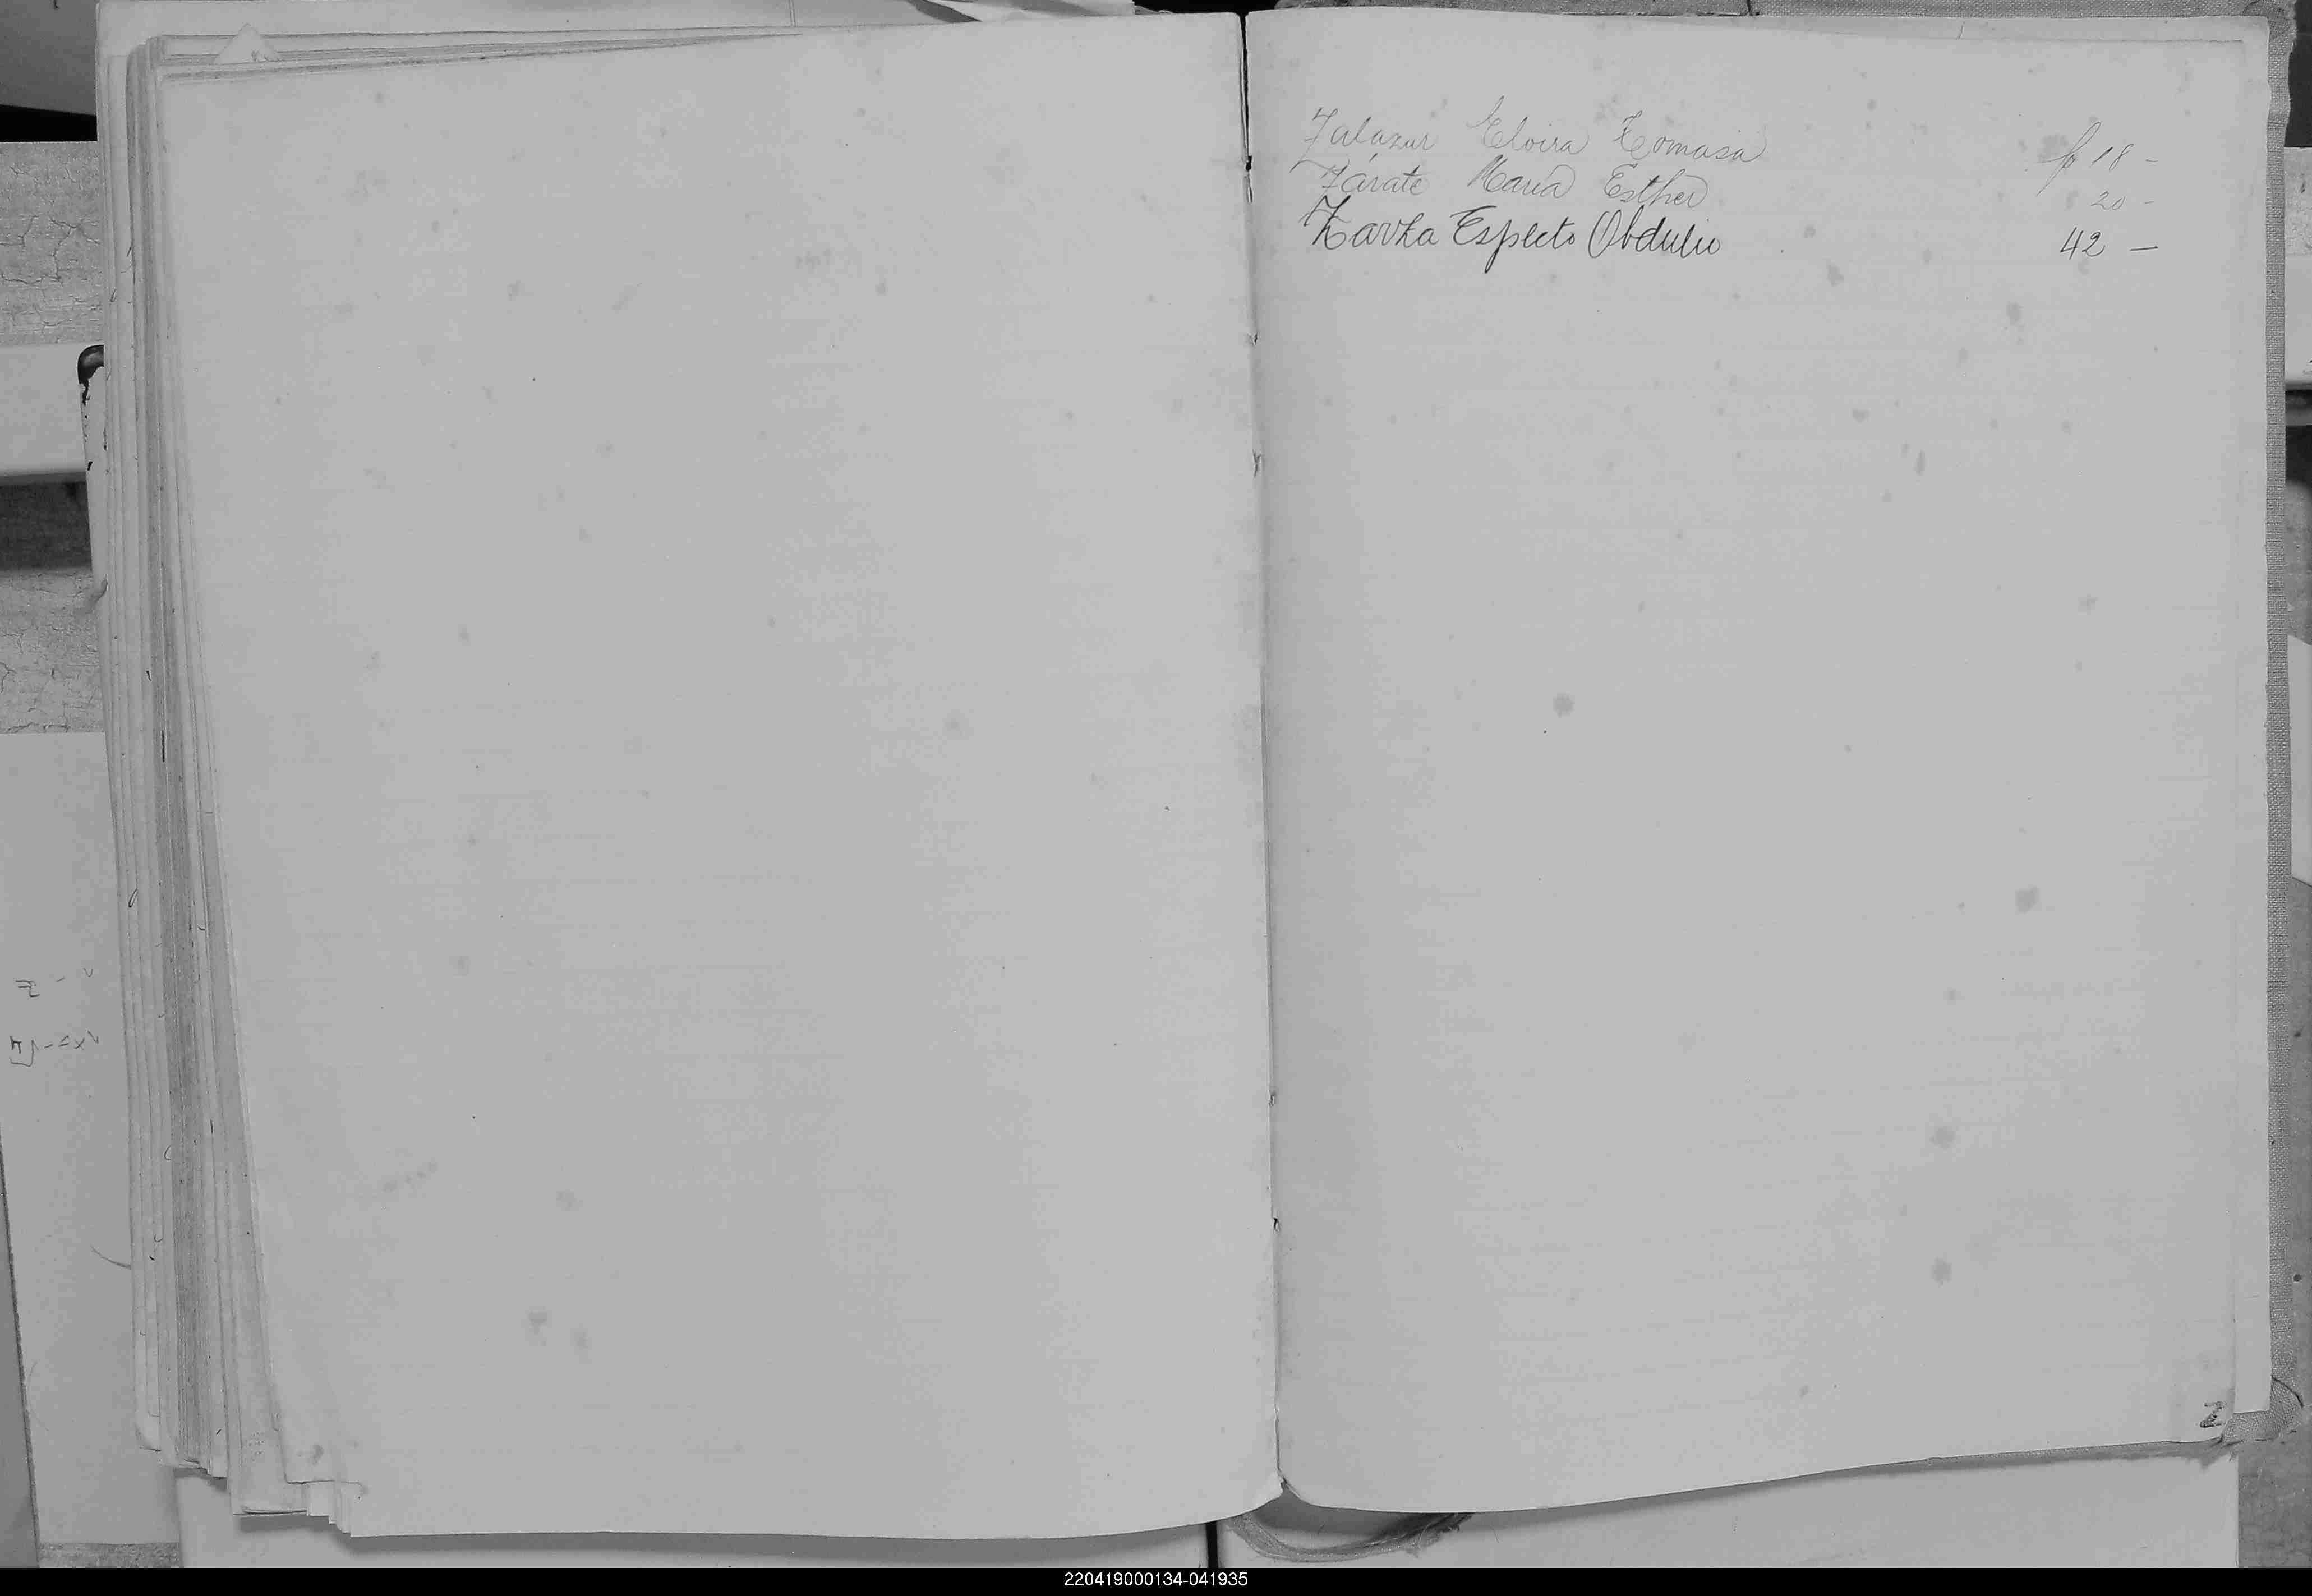 Zalazar Eloira Tomasa fo 18 -
Zárate María Esther 20 -
Zarza Espleto Obdulio 42 —
Z
220419000134-041935